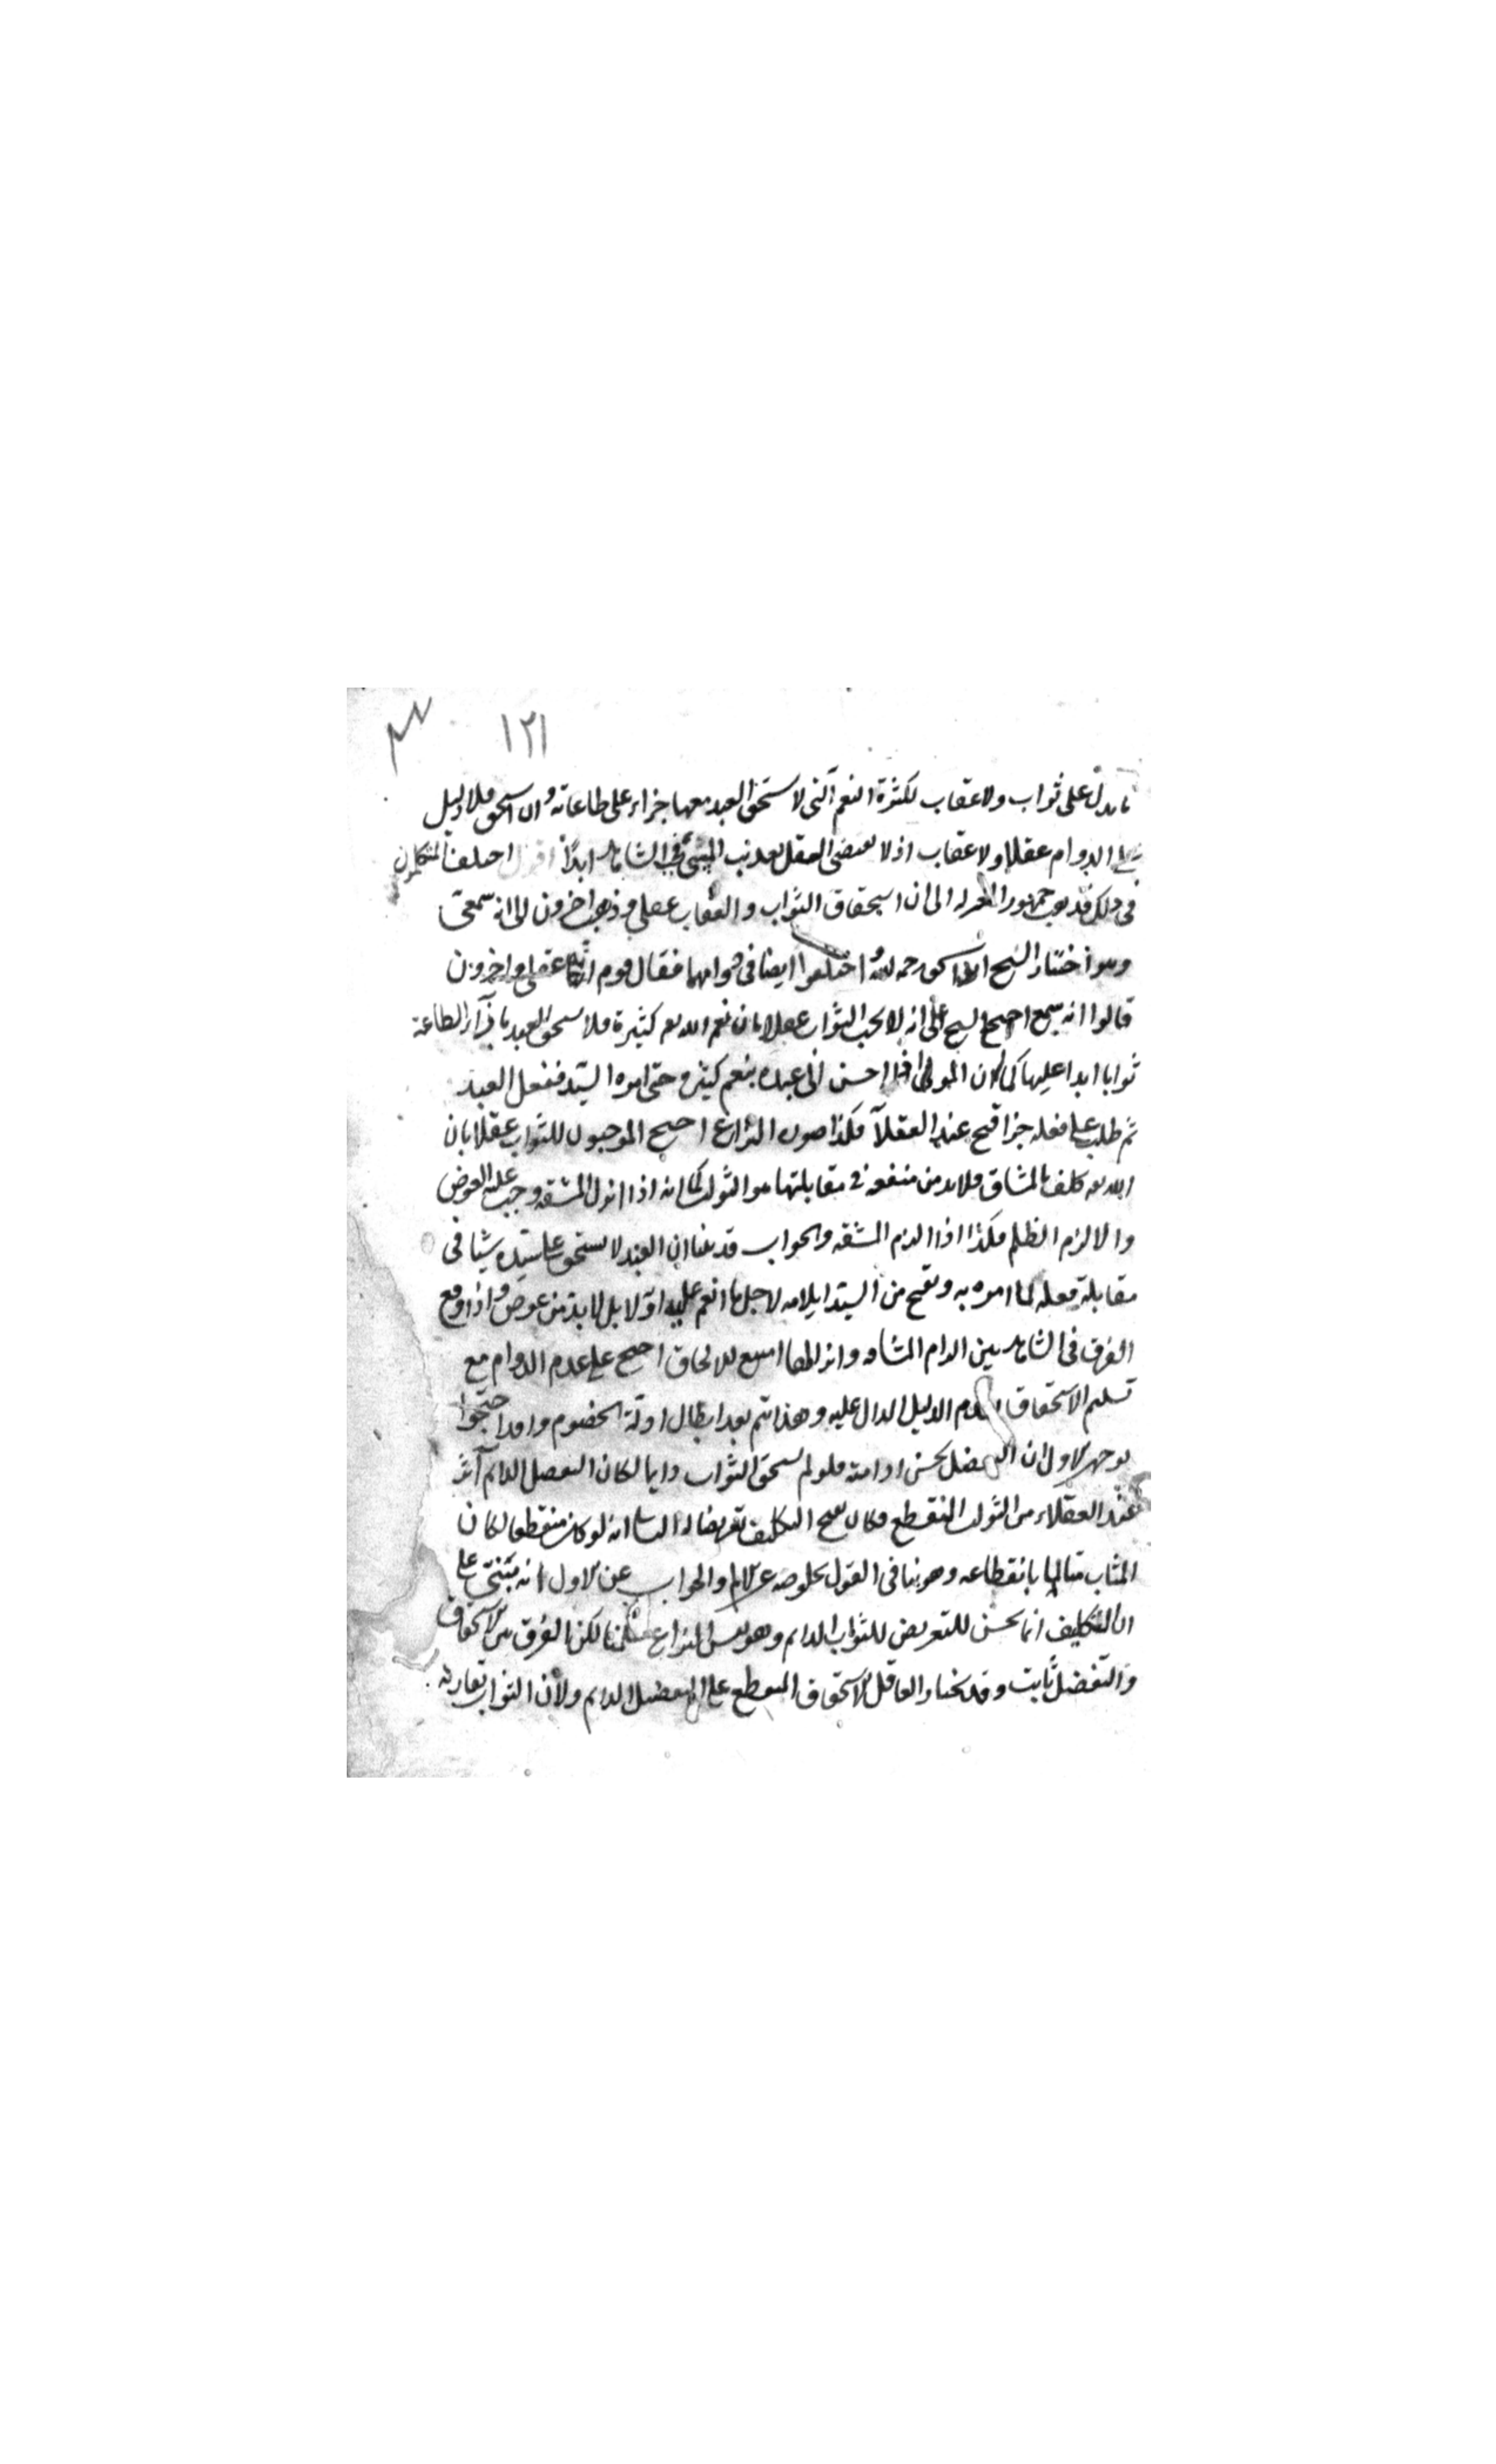 ١٢١
ما يدل على ثواب ولا عقاب لكثرة النعم التى لا يستحق العبد معها جزاء على طاعاته وان استحق فلا دليل
على الدوام عقلا ولا عقاب اذ لا يقتضى العقل تعذيب المسىء فى الشاهد ابدا اقول اختلف المتكلمون
فى ذلك فذهب جمهور المعتزلة الى ان استحقاق الثواب والعقاب عقلى وذهب اخرون الى انه سمعى
وهو اختيار الشيخ ابى اسحق رحمه الله واختلفوا ايضا فى دوامهما فقال قوم انه عقلى واخرون
قالوا انه سمع احتج الشيخ على انه لا يجب الثواب عقلا بان نعم الله تعالى كثيرة فلا يستحق العبد بازاء الطاعة
ثوابا ابدا عليها كما ان المولى اذا احسن الى عبده بنعم كثيرة حتى امره السيد ففعل العبد
ثم طلب على فعله جزا قبح عند العقلآ فكذا صورة النزاع احتج الموجبون للثواب عقلا بان
الله تعالى كلف بالمشاق فلا بد من منفعة فى مقابلتها هو الثواب كما انه اذا انزل المشقة وجب عليه العوض
والا لزم الظلم فكذا اذا الزم المشقة والجواب قد بينا ان العبد لا يستحق على سيده شيا فى
مقابلة فعله لما امره به ويقبح من السيد ايلامه لاجل ما انعم عليه اولا بل لا بد من عوض واذا وقع
الفرق فى الشاهد بين الزام المشاق وانزالها امتنع الالحاق احتج على عدم الدوام مع
تسليم الاستحقاق بعدم الدليل الدال عليه وهذا يتم بعد ابطال ادلة الخصوم وقد احتجوا
بوجهين الاول ان التفضل يحسن ادامته فلو لم يستحق الثواب دايما لكان التفضل الدايم آثر
عند العقلاء من الثواب المنقطع فكان يقبح التكليف تعريضا له الثانى انه لو كان منقطعا لكان
المثاب متالما بانقطاعه وهو ينافى القول بخلوصه عن الالم والجواب عن الاول انه يبتنى على
ان التكليف انما يحسن للتعريض للثواب الدايم وهو نفس النزاع سلمنا لكن الفرق بين الاستحقاق
والتفضل ثابت وقد يختار العاقل الاستحقاق المنقطع على التفضل الدايم ولان الثواب يقارنه